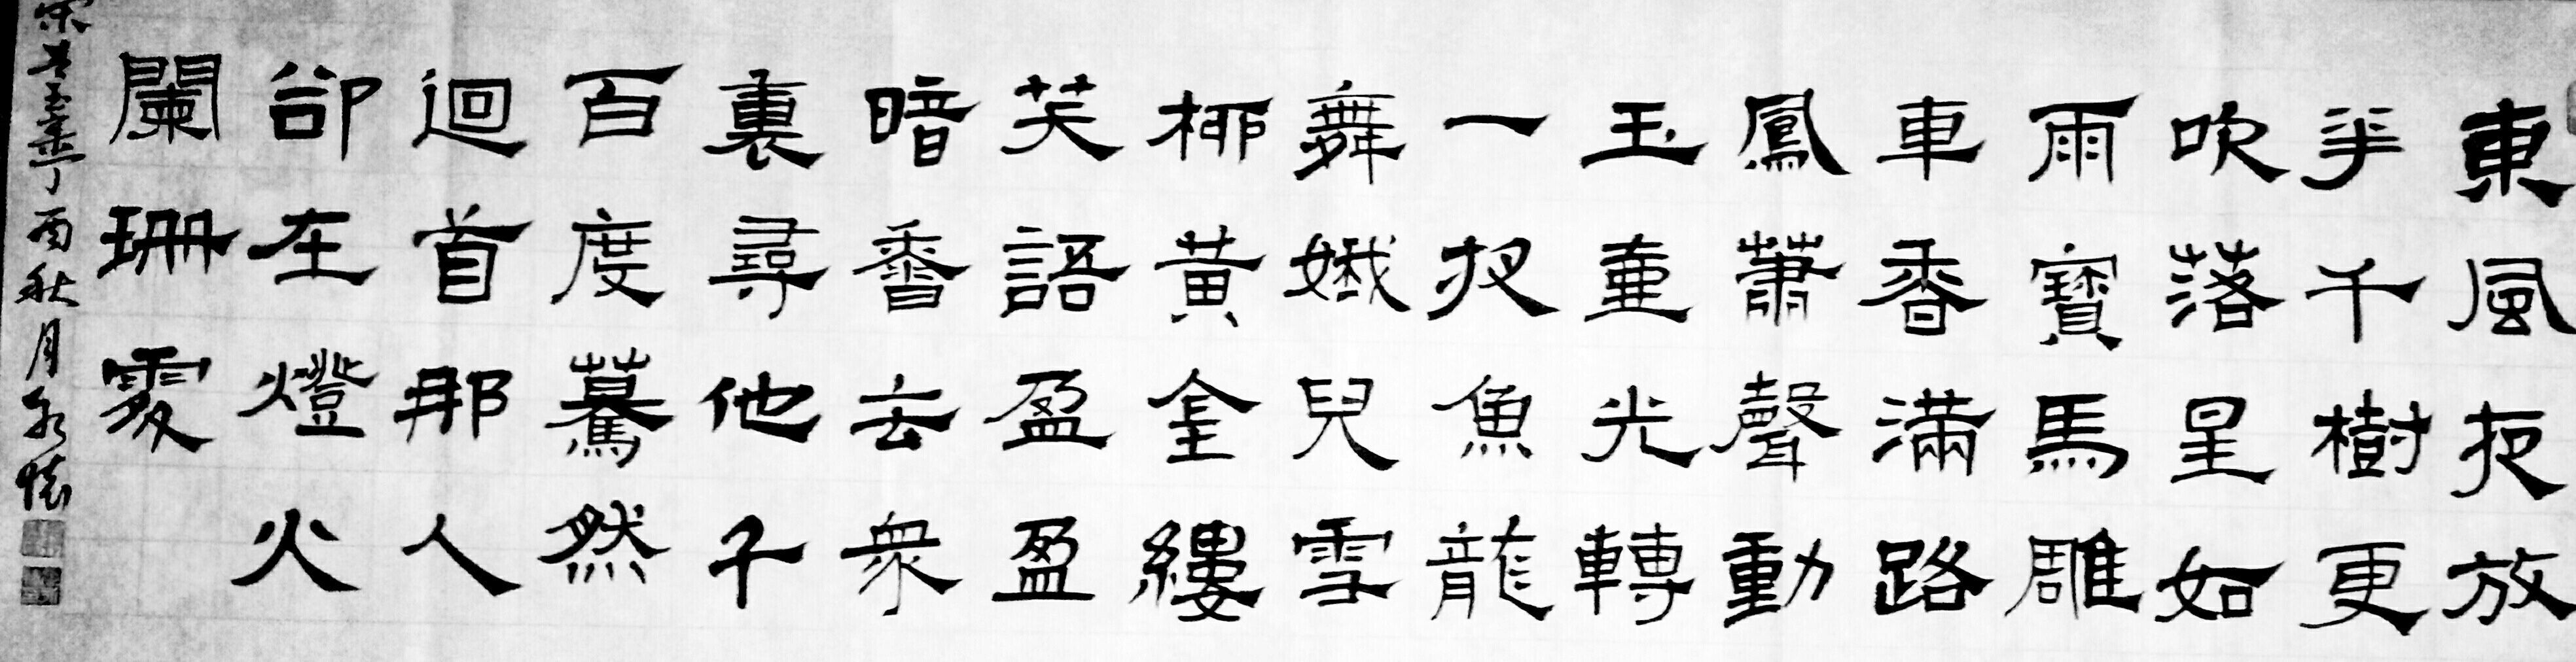 東風夜放
花千樹更
吹落星如
雨寶馬雕
車香滿路
鳳蕭聲動
玉壺光轉
一夜魚龍
舞蛾兒雪
柳黃金縷
笑語盈盈
暗香去眾
裏尋他千
百度驀然
迴首那人
卻在燈火
闌珊處
丁酉秋月